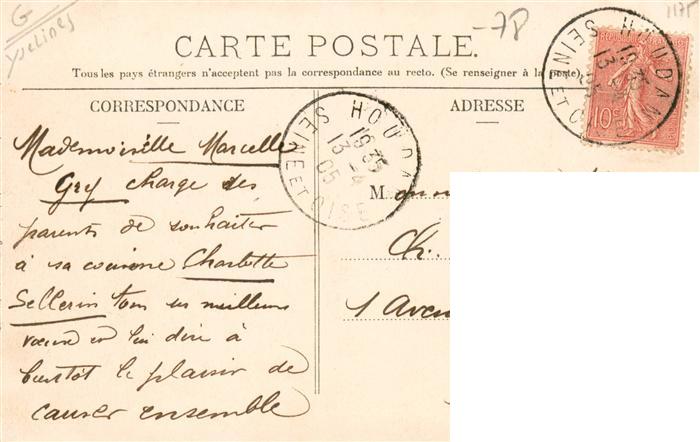 G
Yvelines
-78
1175
CARTE POSTALE.
Tous les pays étrangers n'acceptent pas la correspondance au recto. (Se renseigner à la poste)
CORRESPONDANCE
ADRESSE
HOUDAN
19 35
13 -4
05
SEINE ET OISE
HOUDAN
19 35
13
SEINE ET OISE
10c
Mademoiselle Marcelle
Gry charge ses
parents de souhaiter
à sa cousine Charlotte
Sellerin tous ses meilleurs
vœux et lui dire à
bientôt le plaisir de
causer ensemble
M
Ch.
1 Aven